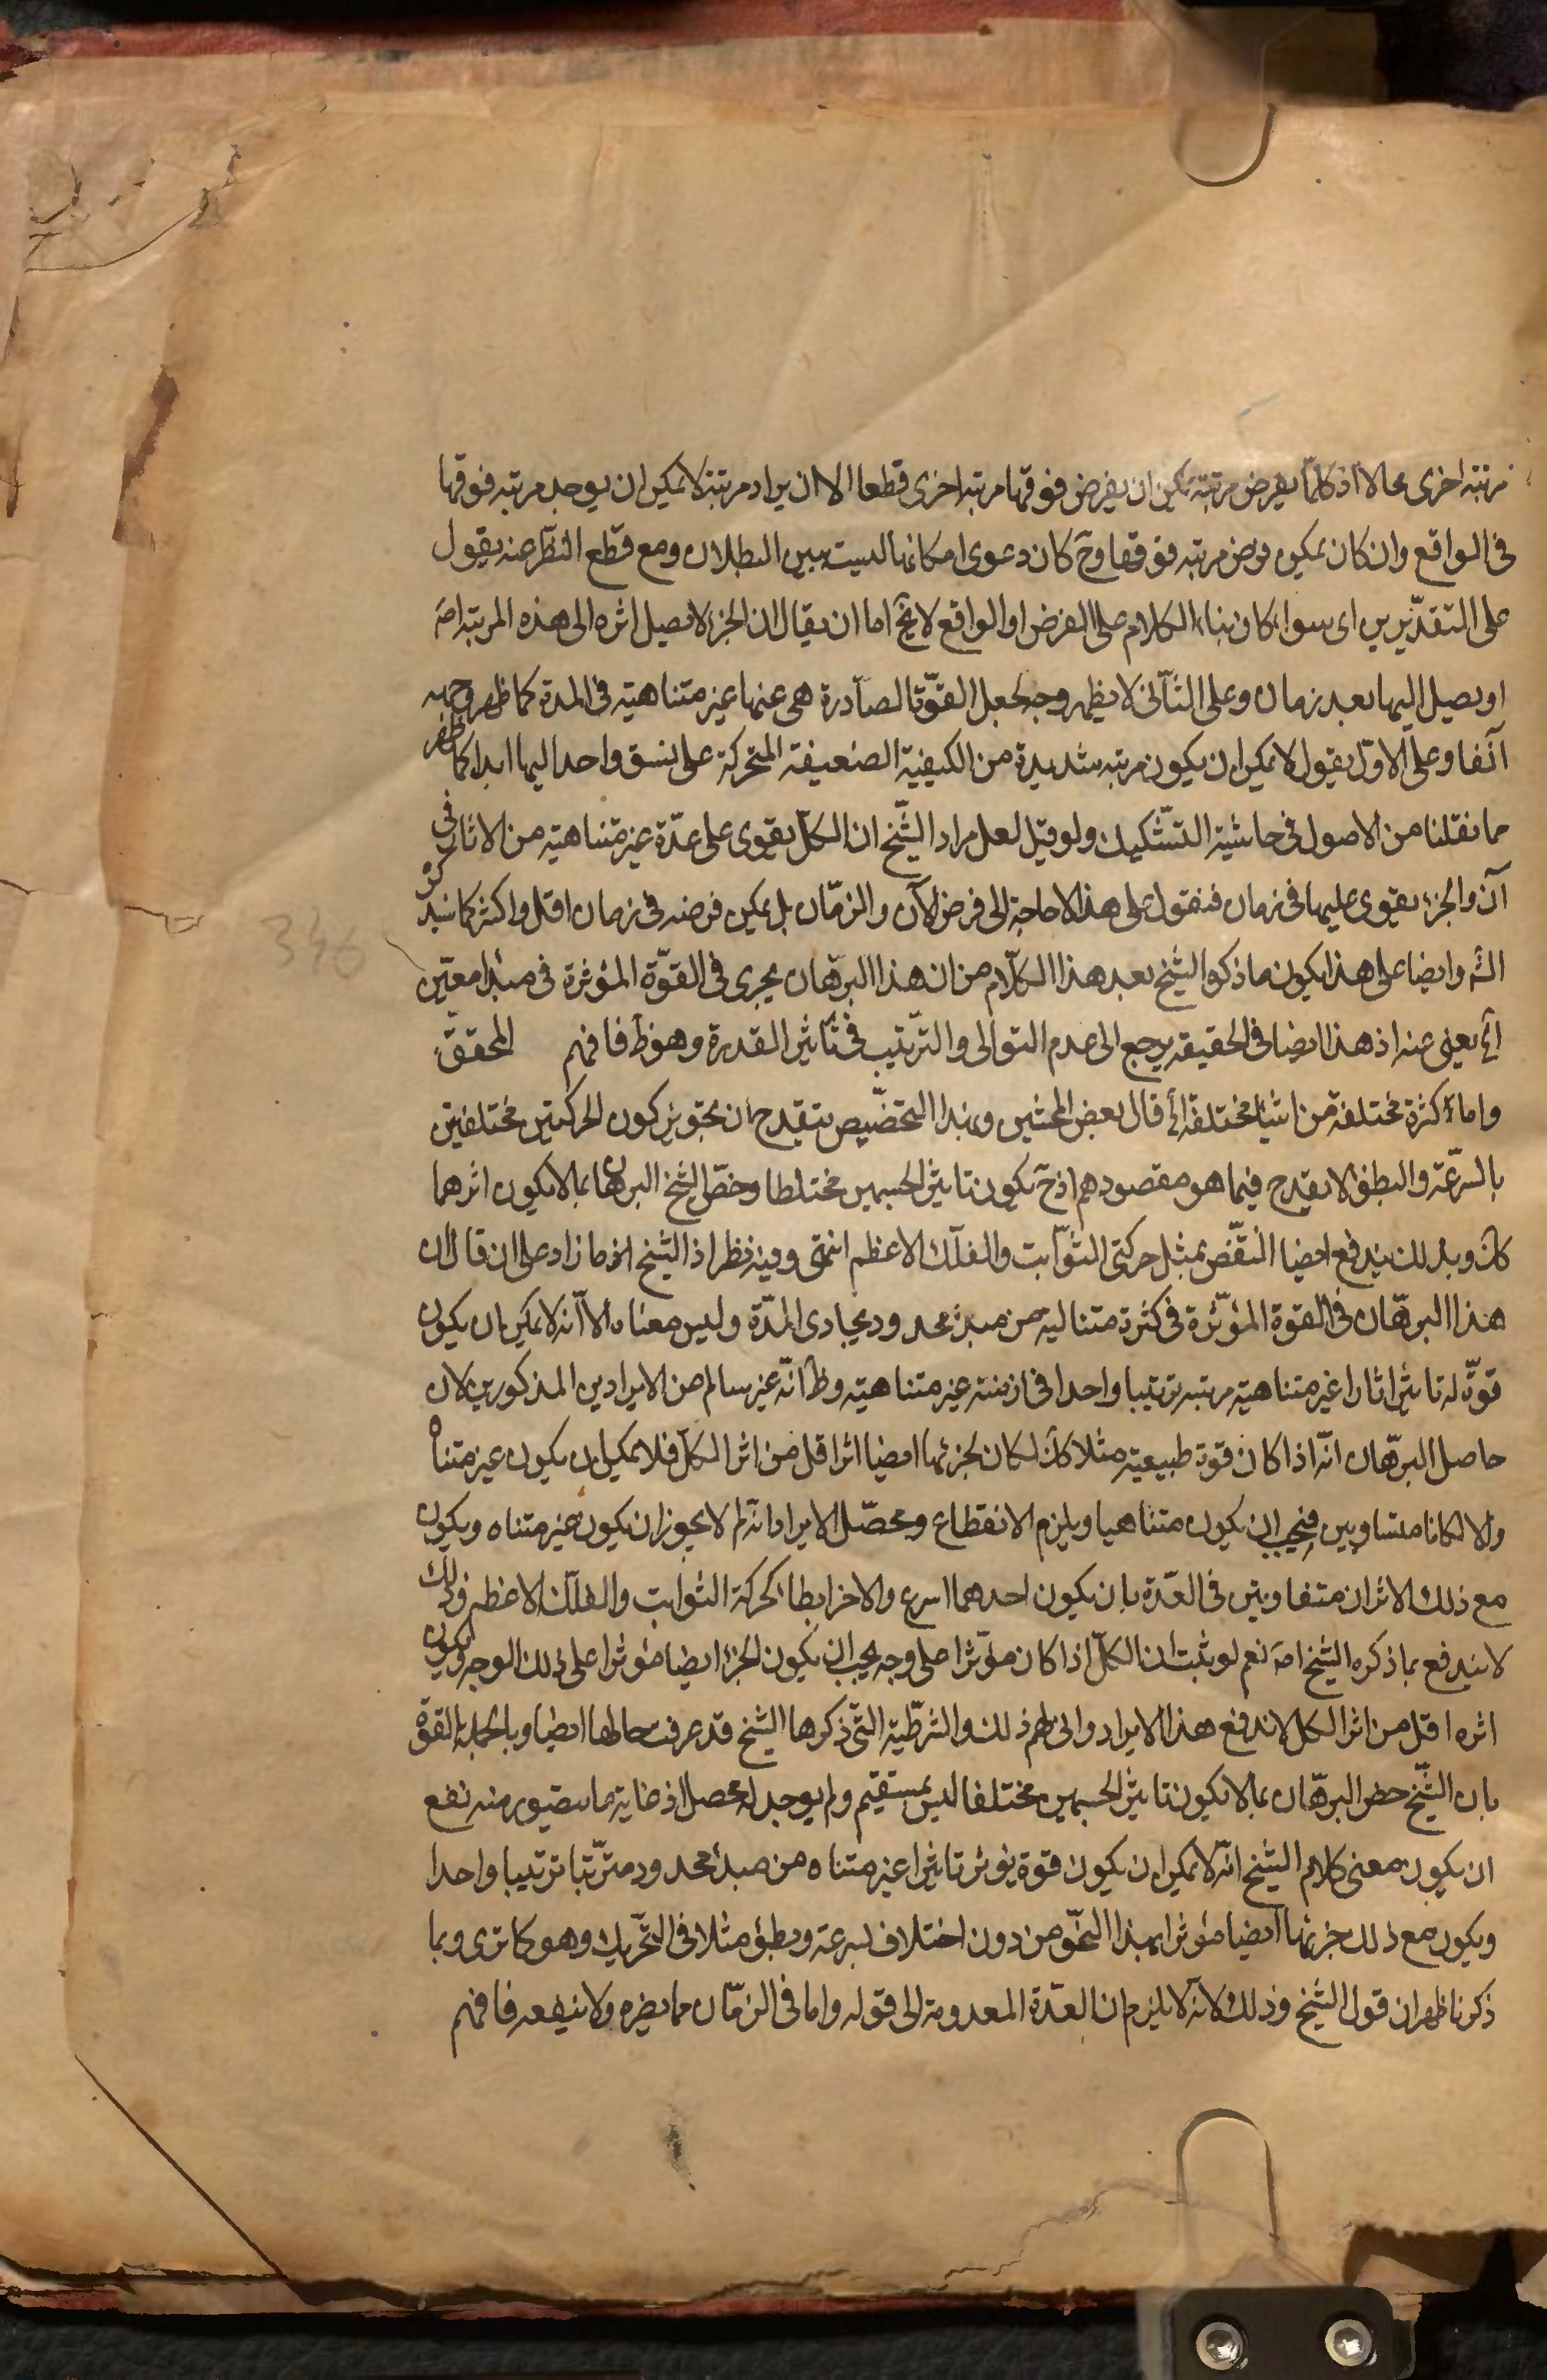 مرتبة اخرى محالا اذ كلما يفرض مرتبة يمكن ان يفرض فوقها مرتبة اخرى قطعا الا ان يراد مرتبة لا يمكن ان يوجد مرتبة فوقها
فى الواقع وان كان يمكن فرض مرتبة فوقها وح كان دعوى امكانها ليست ببين البطلان ومع قطع النظر عنه يقول
على التقديرين اى سواء كان بناء الكلام على الفرض او الواقع لا يخ اما ان يقال ان الجزء لا يصل اثره الى هذه المرتبة اصه
او يصل اليها بعد زمان وعلى الثانى لا يظهر وجه لجعل القوة الصادرة هى عنها غير متناهية فى المدة كما ظهر وجهه
آنفا وعلى الاول يقول لا يمكن ان يكون مرتبة شديدة من الكيفية الضعيفة المتحركة على نسق واحد اليها ابدا كما ظهر
مما نقلنا من الاصول فى حاشية التشكيك ولو قيل لعل مراد الشيخ ان الكل يقوى على عدة غير متناهية من الاثار فى
آن والجزء يقوى عليها فى زمان فنقول على هذا لا حاجة الى فرض الآن والزمان بل يمكن فرضه فى زمان اقل واكثر كما سيذكره
الشه وايضا على هذا يكون ما ذكره الشيخ بعد هذا الكلام من ان هذا البرهان يجرى فى القوة المؤثرة فى مبدا معين
الخ يعنى عنه اذ هذا ايضا فى الحقيقة يرجع الى عدم التوالى والترتيب فى تاثير القدرة وهو ظ فافهم المحقق
واما كثرة مختلفة من اشياء مختلفة الخ قال بعض المحشين وبهذا التخصيص يتقدح ان تجويز كون الحركتين مختلفتين
بالسرعة والبطؤ لا يقدح فيما هو مقصودهم اذ ح يكون تاثير الجسمين مختلطا وخص الشيخ البرهان بما لا يكون اثرهما
كك وبذلك يندفع ايضا النقض بمثل حركتى الثوابت والفلك الاعظم انتهى وفيه نظر اذ الشيخ ما زاد على ان قال ان
هذا البرهان فى القوة المؤثرة فى كثرة متتالية من مبدء محدود يحادى المدة وليس معناه الا انه لا يمكن ان يكون
قوة له تاثير اثارا غير متناهية مرتبة ترتيبا واحدا فى ازمنة غير متناهية وظ انه غير سالم من الايرادين المذكورين لان
حاصل البرهان انه اذا كان قوة طبيعية مثلا كك لكان لجزئها ايضا اثر اقل من اثر الكل فلا يمكن ان يكون غير متناه
والا لكانا متساويين فيجب ان يكون متناهيا ويلزم الانقطاع ومحصل الايراد انه لم لا يجوز ان يكون غير متناه ويكون
مع ذلك الاثران متفاوتين فى العدة بان يكون احدهما اسرع والاخر ابطأ كحركة الثوابت والفلك الاعظم وذلك
لا يندفع بما ذكره الشيخ اصه نعم لو ثبت ان الكل اذا كان مؤثرا على وجه يجب ان يكون الجزء ايضا مؤثرا على ذلك الوجه ويكون
اثره اقل من اثر الكل لاندفع هذا الايراد وانى لهم ذلك والشرطية التى ذكرها الشيخ قد عرفت حالها ايضا وبالجملة القول
بان الشيخ خص البرهان بما لا يكون تاثير الجسمين مختلفا ليس بمستقيم ولم يوجد له محصل اذ غاية ما يتصور منه نفع
ان يكون معنى كلام الشيخ انه لا يمكن ان يكون قوة يؤثر تاثيرا غير متناه من مبدء محدود مترتبا ترتيبا واحدا
ويكون مع ذلك جزئها ايضا مؤثرا بهذا النحو من دون اختلاف بسرعة وبطؤ مثلا فى التحريك وهو كما ترى وبما
ذكرنا ظهر ان قول الشيخ وذلك لانه لا يلزم ان العدة المعدومة الى قوله واما فى الزمان مما يضره ولا ينفعه فافهم